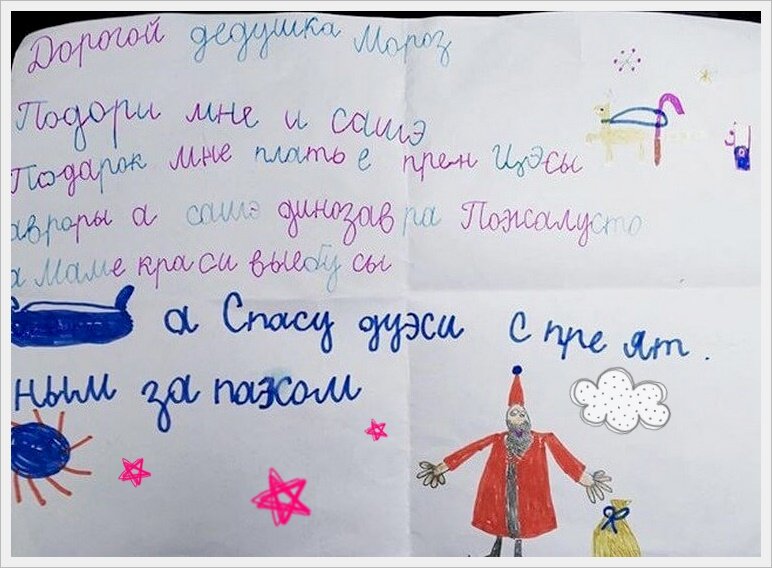 Дорогой дедушка Мороз
Подори мне и сашэ
Подарок мне платье прен цэсы
авроры а сашэ динозав ра Пожалусто
а маме кра си выебу сы
а Спасу дуэси с пре ят.
ным за пахом